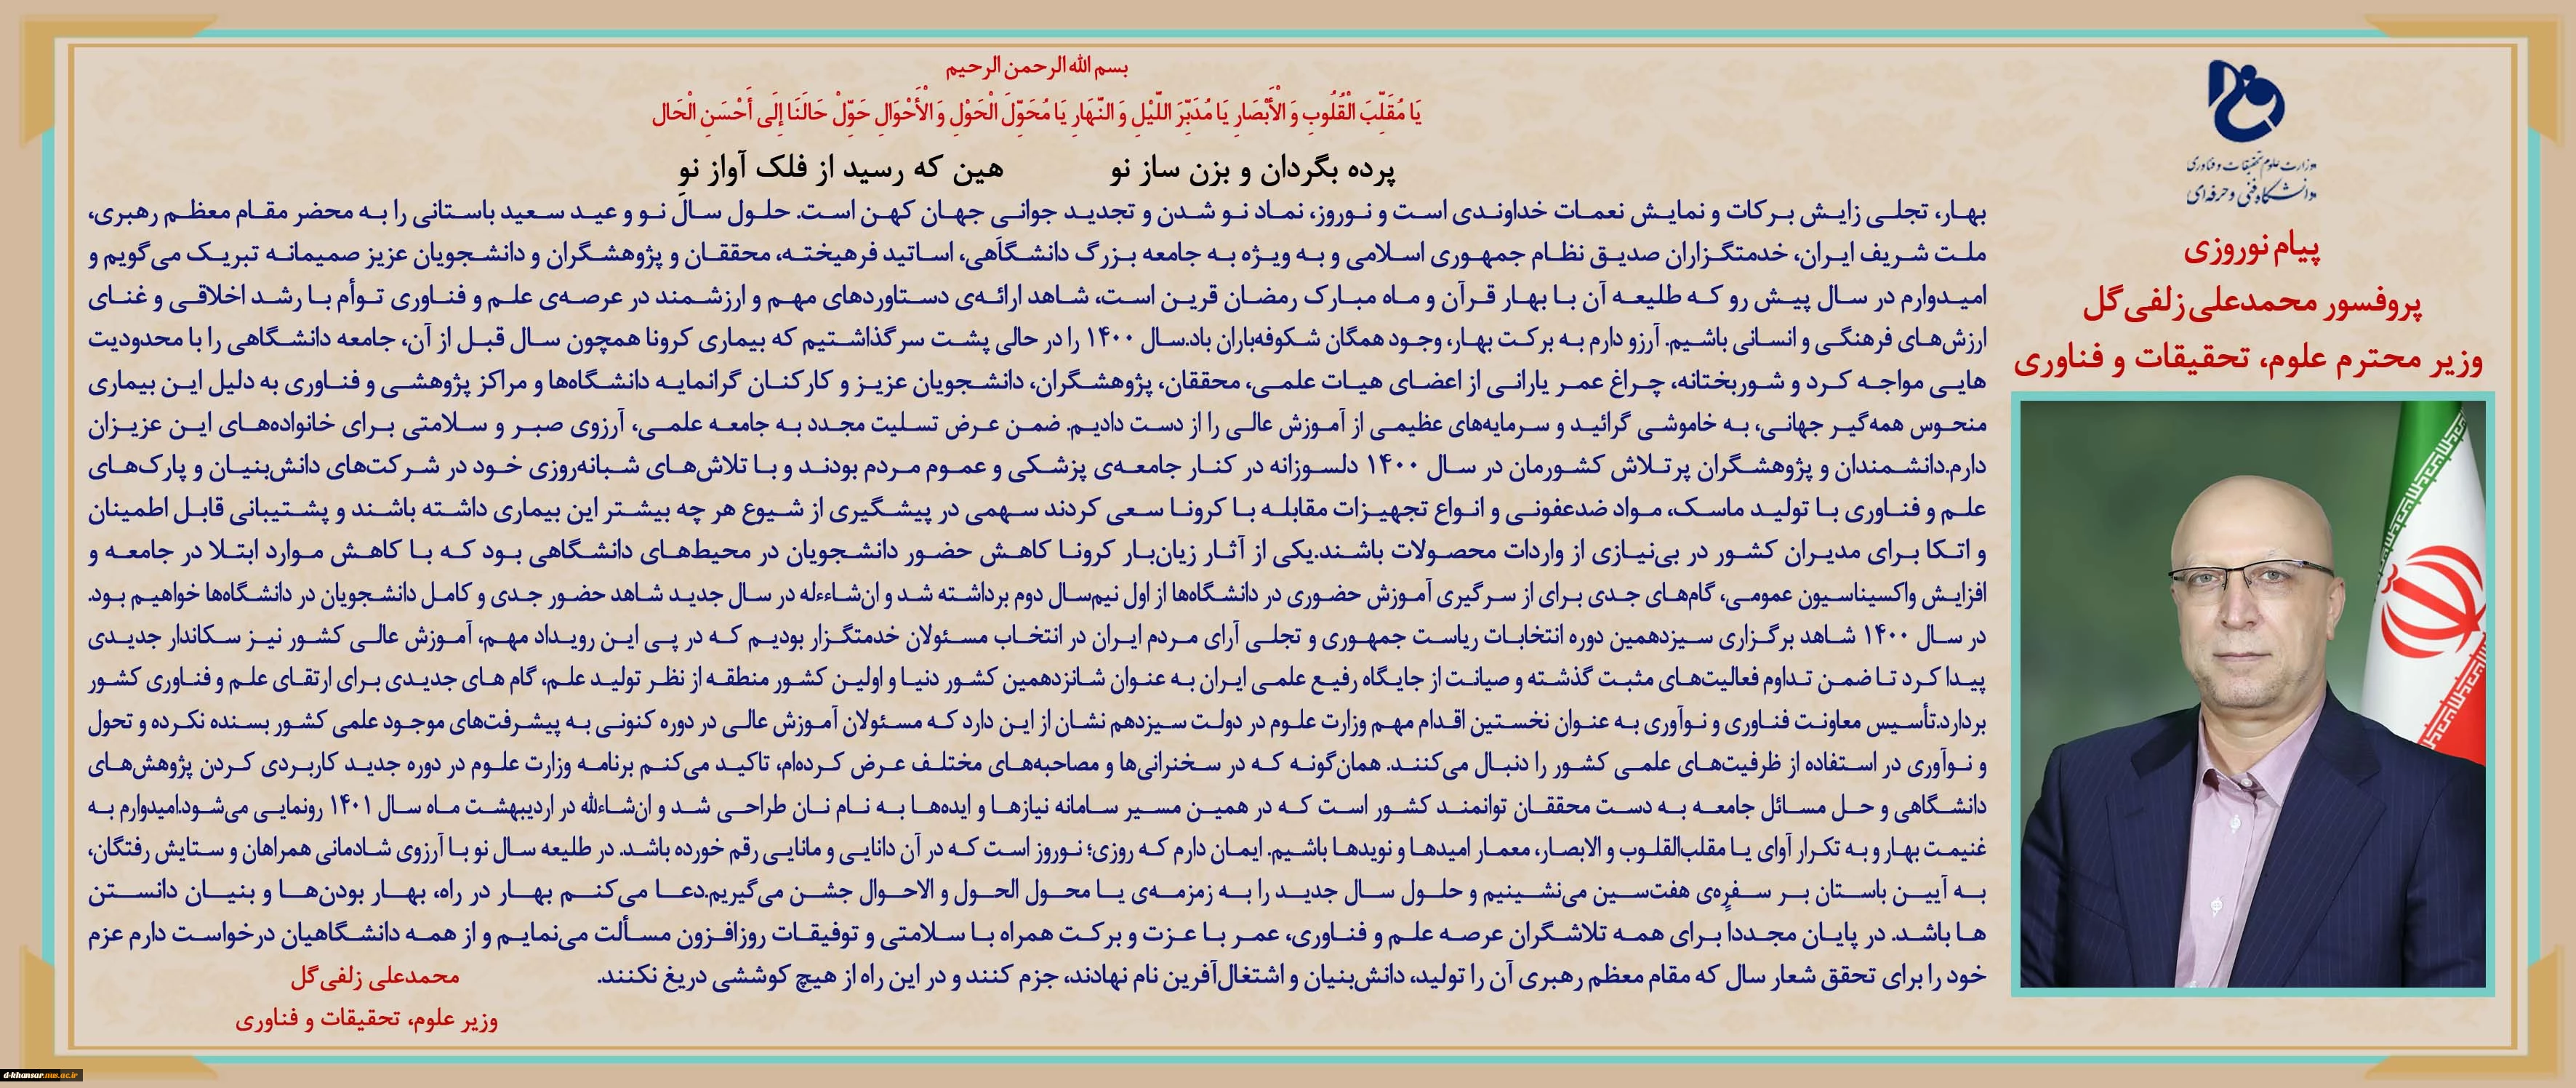 بسم الله الرحمن الرحیم
يَا مُقَلِّبَ الْقُلُوبِ وَ الْأَبْصَارِ يَا مُدَبِّرَ اللَّيْلِ وَ النَّهَارِ يَا مُحَوِّلَ الْحَوْلِ وَ الْأَحْوَالِ حَوِّلْ حَالَنَا إِلَى أَحْسَنِ الْحَالِ
پرده بگردان و بزن ساز نو هین که رسید از فلک آواز نو
وزارت علوم تحقیقات و فناوری
دانشگاه فنی و حرفه‌ای
پیام نوروزی
پروفسور محمدعلی زلفی گل
وزیر محترم علوم، تحقیقات و فناوری
بهار، تجلی زایش برکات و نمایش نعمات خداوندی است و نوروز، نماد نو شدن و تجدید جوانی جهان کهن است. حلول سال نو و عید سعید باستانی را به محضر مقام معظم رهبری،
ملت شریف ایران، خدمتگزاران صدیق نظام جمهوری اسلامی و به ویژه به جامعه بزرگ دانشگاهی، اساتید فرهیخته، محققان و پژوهشگران و دانشجویان عزیز صمیمانه تبریک می‌گویم و
امیدوارم در سال پیش رو که طلیعه آن با بهار قرآن و ماه مبارک رمضان قرین است، شاهد ارائه‌ی دستاوردهای مهم و ارزشمند در عرصه‌ی علم و فناوری توأم با رشد اخلاقی و غنای
ارزش‌های فرهنگی و انسانی باشیم. آرزو دارم به برکت بهار، وجود همگان شکوفه‌باران باد.سال ۱۴۰۰ را در حالی پشت سر گذاشتیم که بیماری کرونا همچون سال قبل از آن، جامعه دانشگاهی را با محدودیت
هایی مواجه کرد و شوربختانه، چراغ عمر یارانی از اعضای هیات علمی، محققان، پژوهشگران، دانشجویان عزیز و کارکنان گرانمایه دانشگاه‌ها و مراکز پژوهشی و فناوری به دلیل این بیماری
منحوس همه‌گیر جهانی، به خاموشی گرائید و سرمایه‌های عظیمی از آموزش عالی را از دست دادیم. ضمن عرض تسلیت مجدد به جامعه علمی، آرزوی صبر و سلامتی برای خانواده‌های این عزیزان
دارم.دانشمندان و پژوهشگران پرتلاش کشورمان در سال ۱۴۰۰ دلسوزانه در کنار جامعه‌ی پزشکی و عموم مردم بودند و با تلاش‌های شبانه‌روزی خود در شرکت‌های دانش‌بنیان و پارک‌های
علم و فناوری با تولید ماسک، مواد ضدعفونی و انواع تجهیزات مقابله با کرونا سعی کردند سهمی در پیشگیری از شیوع هر چه بیشتر این بیماری داشته باشند و پشتیبانی قابل اطمینان
و اتکا برای مدیران کشور در بی‌نیازی از واردات محصولات باشند.یکی از آثار زیان‌بار کرونا کاهش حضور دانشجویان در محیط‌های دانشگاهی بود که با کاهش موارد ابتلا در جامعه و
افزایش واکسیناسیون عمومی، گام‌های جدی برای از سرگیری آموزش حضوری در دانشگاه‌ها از اول نیم‌سال دوم برداشته شد و ان‌شاءءله در سال جدید شاهد حضور جدی و کامل دانشجویان در دانشگاه‌ها خواهیم بود.
در سال ۱۴۰۰ شاهد برگزاری سیزدهمین دوره انتخابات ریاست جمهوری و تجلی آرای مردم ایران در انتخاب مسئولان خدمتگزار بودیم که در پی این رویداد مهم، آموزش عالی کشور نیز سکاندار جدیدی
پیدا کرد تا ضمن تداوم فعالیت‌های مثبت گذشته و صیانت از جایگاه رفیع علمی ایران به عنوان شانزدهمین کشور دنیا و اولین کشور منطقه از نظر تولید علم، گام های جدیدی برای ارتقای علم و فناوری کشور
بردارد.تأسیس معاونت فناوری و نوآوری به عنوان نخستین اقدام مهم وزارت علوم در دولت سیزدهم نشان از این دارد که مسئولان آموزش عالی در دوره کنونی به پیشرفت‌های موجود علمی کشور بسنده نکرده و تحول
و نوآوری در استفاده از ظرفیت‌های علمی کشور را دنبال می‌کنند. همان‌گونه که در سخنرانی‌ها و مصاحبه‌های مختلف عرض کرده‌ام، تاکید می‌کنم برنامه وزارت علوم در دوره جدید کاربردی کردن پژوهش‌های
دانشگاهی و حل مسائل جامعه به دست محققان توانمند کشور است که در همین مسیر سامانه نیازها و ایده‌ها به نام نان طراحی شد و ان‌شاءالله در اردیبهشت ماه سال ۱۴۰۱ رونمایی می‌شود.امیدوارم به
غنیمت بهار و به تکرار آوای یا مقلب‌القلوب و الابصار، معمار امیدها و نویدها باشیم. ایمان دارم که روزی؛ نوروز است که در آن دانایی و مانایی رقم خورده باشد. در طلیعه سال نو با آرزوی شادمانی همراهان و ستایش رفتگان،
به آیین باستان بر سفره‌ی هفت‌سین می‌نشینیم و حلول سال جدید را به زمزمه‌ی یا محول الحول و الاحوال جشن می‌گیریم.دعا می‌کنم بهار در راه، بهار بودن‌ها و بنیان دانستن
ها باشد. در پایان مجددا برای همه تلاشگران عرصه علم و فناوری، عمر با عزت و برکت همراه با سلامتی و توفیقات روزافزون مسألت می‌نمایم و از همه دانشگاهیان درخواست دارم عزم
خود را برای تحقق شعار سال که مقام معظم رهبری آن را تولید، دانش‌بنیان و اشتغال‌آفرین نام نهادند، جزم کنند و در این راه از هیچ کوششی دریغ نکنند.
محمدعلی زلفی گل
وزیر علوم، تحقیقات و فناوری
d-khansar.nus.ac.ir